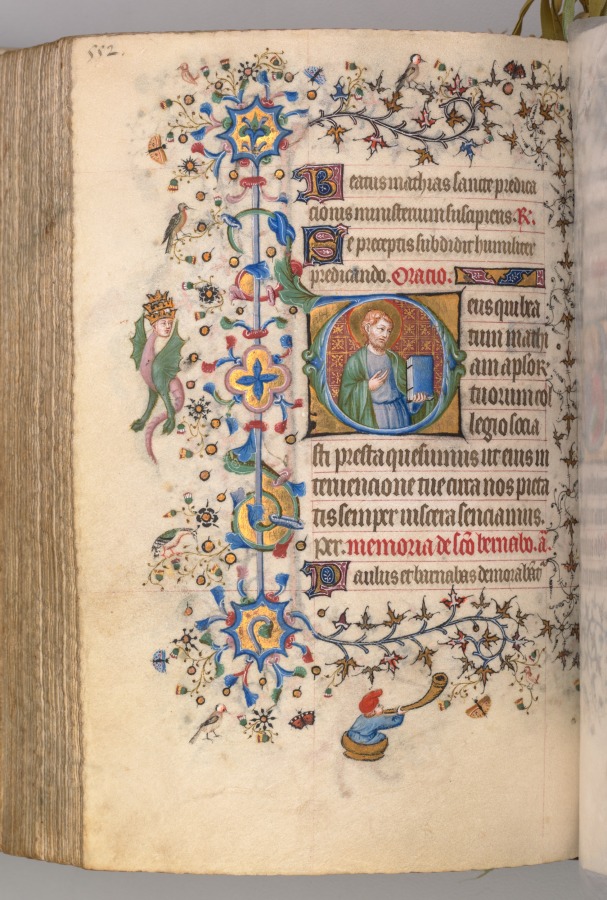 552.
Beatus mathias sancte predica
cionis ministerium suscipiens. R.
Se preceptis subdidit humiliter
predicando. Oracio.
Deus qui bea
tum mathi
am aplor
tuorum col
legio socia
sti presta quesumus ut eius in
teruencione tue circa nos pieta
tis semper viscera senciamus.
per. memoria de sco bernabo. a.
Paulus et barnabas demorabant